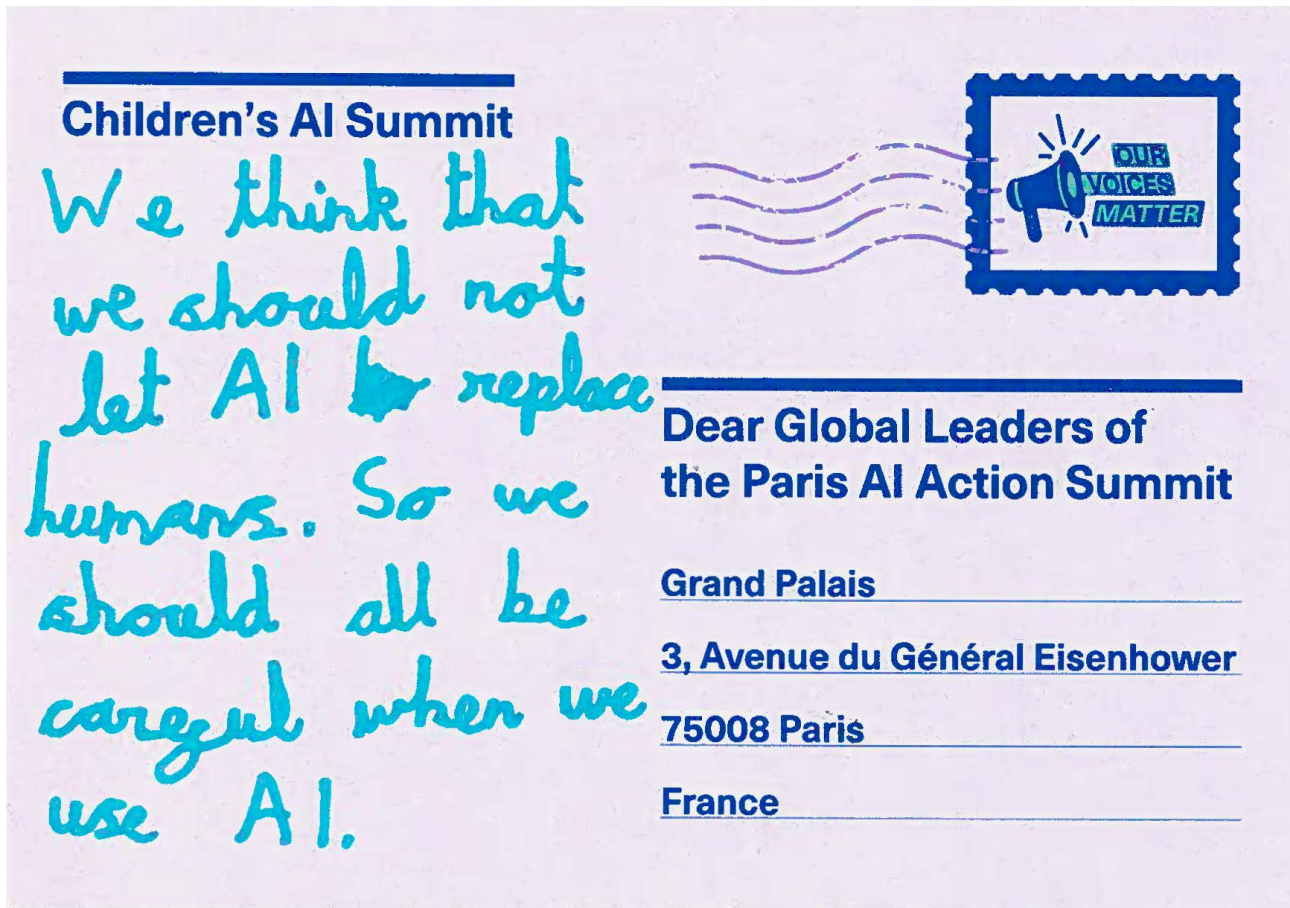 Children's AI Summit
We think that
we should not
let AI replace
humans. So we
should all be
careful when we
use AI.
OUR
VOICES
MATTER
Dear Global Leaders of
the Paris AI Action Summit
Grand Palais
3, Avenue du Général Eisenhower
75008 Paris
France